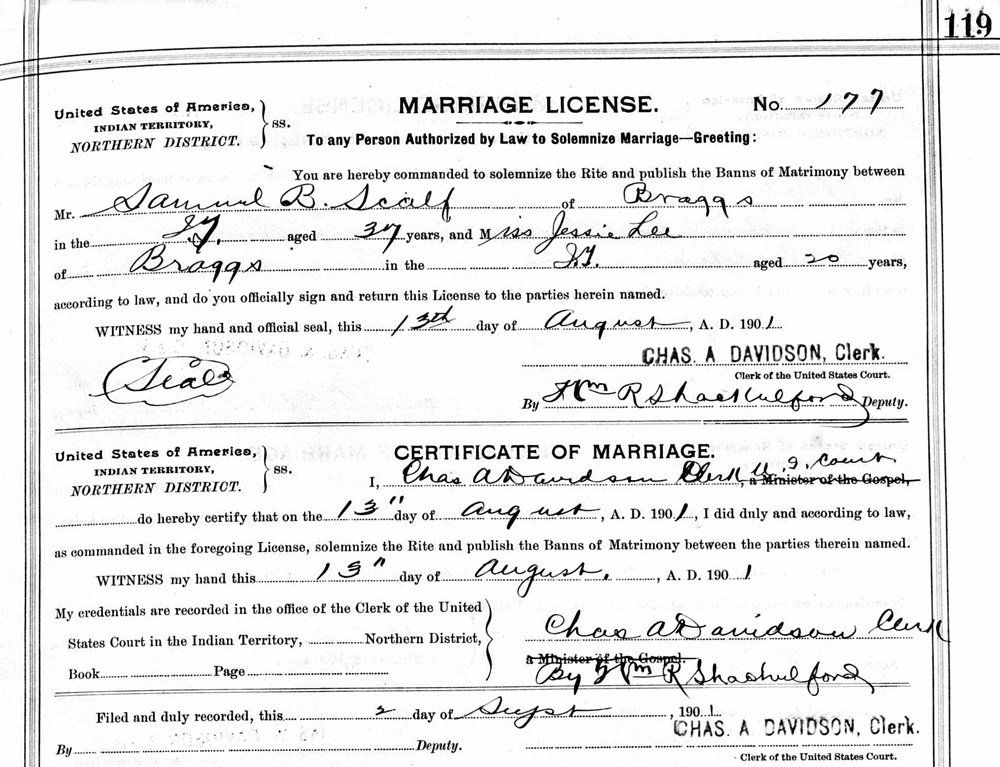 119
United States of America, MARRIAGE LICENSE. No. 177
INDIAN TERRITORY, ss.
NORTHERN DISTRICT. To any Person Authorized by Law to Solemnize Marriage—Greeting:
You are hereby commanded to solemnize the Rite and publish the Banns of Matrimony between
Mr. Samuel B. Scalf of Braggs
in the I.T. aged 37 years, and Miss Jessie Lee
of Braggs in the I.T. aged 20 years,
according to law, and do you officially sign and return this License to the parties herein named.
WITNESS my hand and official seal, this 13th day of August, A. D. 1901.
CHAS. A DAVIDSON, Clerk.
Clerk of the United States Court.
(Seal)
By Wm R Shackulford Deputy.
United States of America, CERTIFICATE OF MARRIAGE.
INDIAN TERRITORY, ss.
NORTHERN DISTRICT. I, Chas A Davidson Clerk U. S. Court, a Minister of the Gospel,
do hereby certify that on the 13" day of August, A. D. 1901, I did duly and according to law,
as commanded in the foregoing License, solemnize the Rite and publish the Banns of Matrimony between the parties therein named.
WITNESS my hand this 13" day of August., A. D. 1901
My credentials are recorded in the office of the Clerk of the United
States Court in the Indian Territory, Northern District,
Book Page
Chas A Davidson Clerk
a Minister of the Gospel.
By Wm R Shackulford
Filed and duly recorded, this 2 day of Sept, 1901.
CHAS. A DAVIDSON, Clerk.
By Deputy.
Clerk of the United States Court.